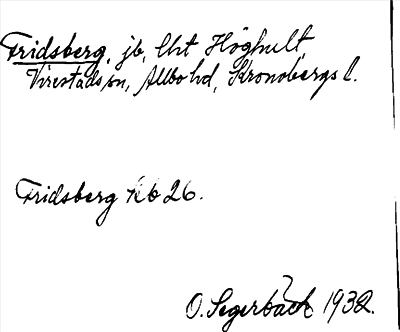 Fridsberg, jb, lht Höghult,
Virestads sn, Allbo hd, Kronobergs l.
Fridsberg Kb 26.
O. Segerbäck 1932.